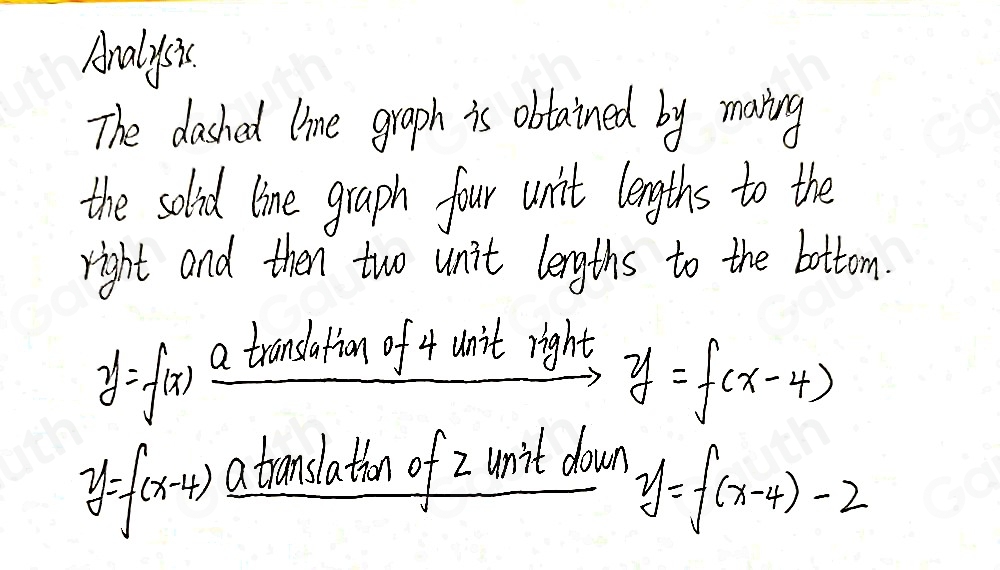 Analysis.
The dashed line graph is obtained by moving
the solid line graph four unit lengths to the
right and then two unit lengths to the bottom.
y=f(x) a translation of 4 unit right y=f(x-4)
y=f(x-4) a translation of 2 unit down y=f(x-4)-2